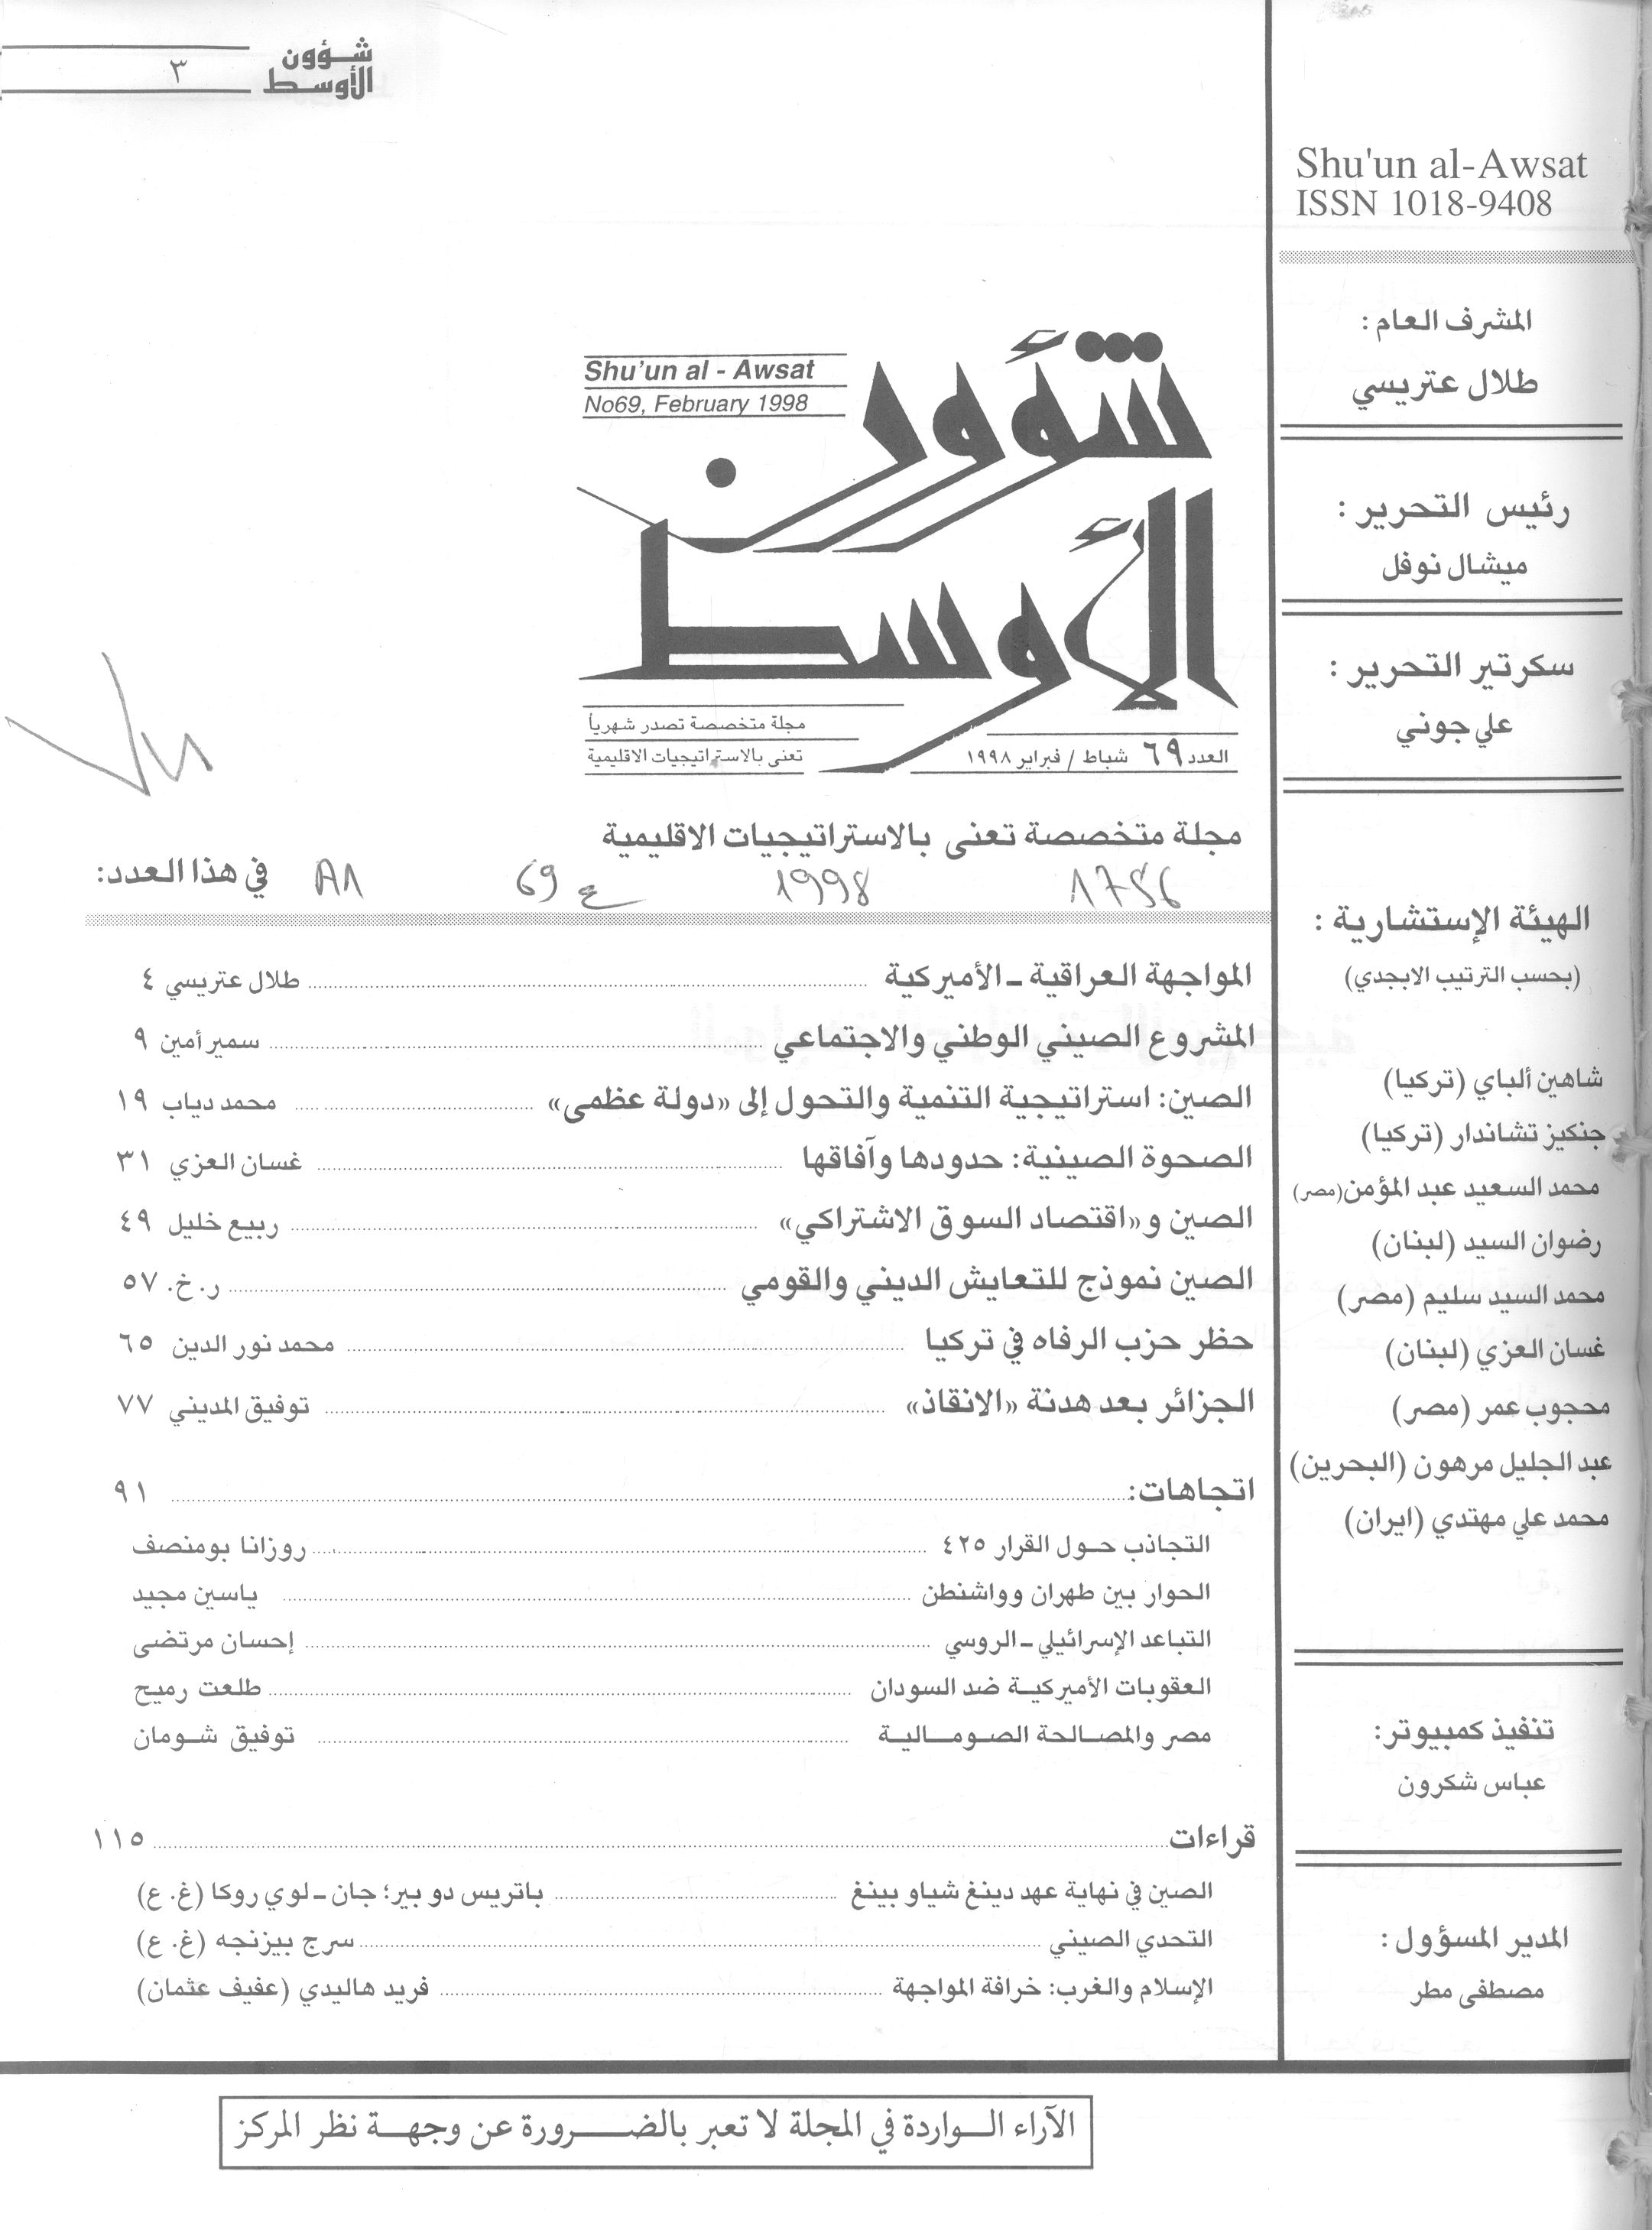 شؤون
الأوسط
٣
Shu'un al-Awsat
ISSN 1018-9408
المشرف العام :
طلال عتريسي
رئيس التحرير :
ميشال نوفل
سكرتير التحرير :
علي جوني
الهيئة الإستشارية :
(بحسب الترتيب الابجدي)
شاهين ألباي (تركيا)
جنكيز تشاندار (تركيا)
محمد السعيد عبد المؤمن (مصر)
رضوان السيد (لبنان)
محمد السيد سليم (مصر)
غسان العزي (لبنان)
محجوب عمر (مصر)
عبد الجليل مرهون (البحرين)
محمد علي مهتدي (ايران)
تنفيذ كمبيوتر:
عباس شكرون
المدير المسؤول :
مصطفى مطر
Shu'un al - Awsat
No69, February 1998
شؤون
الأوسط
مجلة متخصصة تصدر شهرياً
تعنى بالاستراتيجيات الاقليمية
العدد ٦٩ شباط / فبراير ١٩٩٨
مجلة متخصصة تعنى بالاستراتيجيات الاقليمية
1756 1998 ع 69 A1
في هذا العدد:
المواجهة العراقية - الأميركية طلال عتريسي ٤
المشروع الصيني الوطني والاجتماعي سمير أمين ٩
الصين: استراتيجية التنمية والتحول إلى «دولة عظمى» محمد دياب ١٩
الصحوة الصينية: حدودها وآفاقها غسان العزي ٣١
الصين و«اقتصاد السوق الاشتراكي» ربيع خليل ٤٩
الصين نموذج للتعايش الديني والقومي ر.خ. ٥٧
حظر حزب الرفاه في تركيا محمد نور الدين ٦٥
الجزائر بعد هدنة «الانقاذ» توفيق المديني ٧٧
اتجاهات: ٩١
التجاذب حول القرار ٤٢٥ روزانا بومنصف
الحوار بين طهران وواشنطن ياسين مجيد
التباعد الإسرائيلي - الروسي إحسان مرتضى
العقوبات الأميركية ضد السودان طلعت رميح
مصر والمصالحة الصومالية توفيق شومان
قراءات ١١٥
الصين في نهاية عهد دينغ شياو بينغ باتريس دو بير؛ جان - لوي روكا (غ. ع)
التحدي الصيني سرج بيزنجه (غ. ع)
الإسلام والغرب: خرافة المواجهة فريد هاليدي (عفيف عثمان)
الآراء الواردة في المجلة لا تعبر بالضرورة عن وجهة نظر المركز